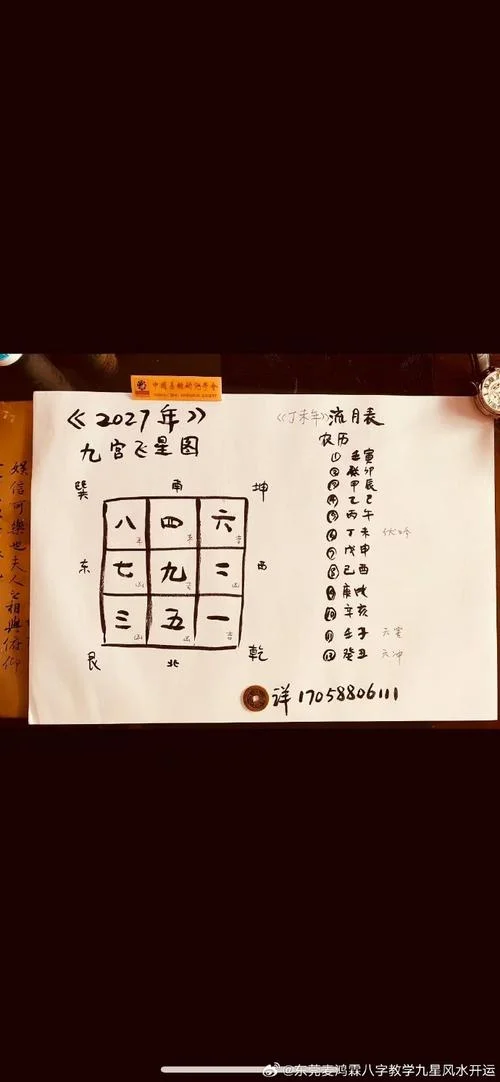 《2027年》
九宫飞星图
巽 南 坤
八 四 六
吉
东 七 九 二 西
凶
三 五 一
凶 凶 吉
艮 北 乾
《丁未年》流月表
农历
① 壬寅
② 癸卯
③ 甲辰
④ 乙巳
⑤ 丙午
⑥ 丁未 伏吟
⑦ 戊申
⑧ 己酉
⑨ 庚戌
⑩ 辛亥
⑪ 壬子 六害
⑫ 癸丑 六冲
详17058806111
娱信可乐也夫人之相与俯仰
@东莞麦鸿霖八字教学九星风水开运